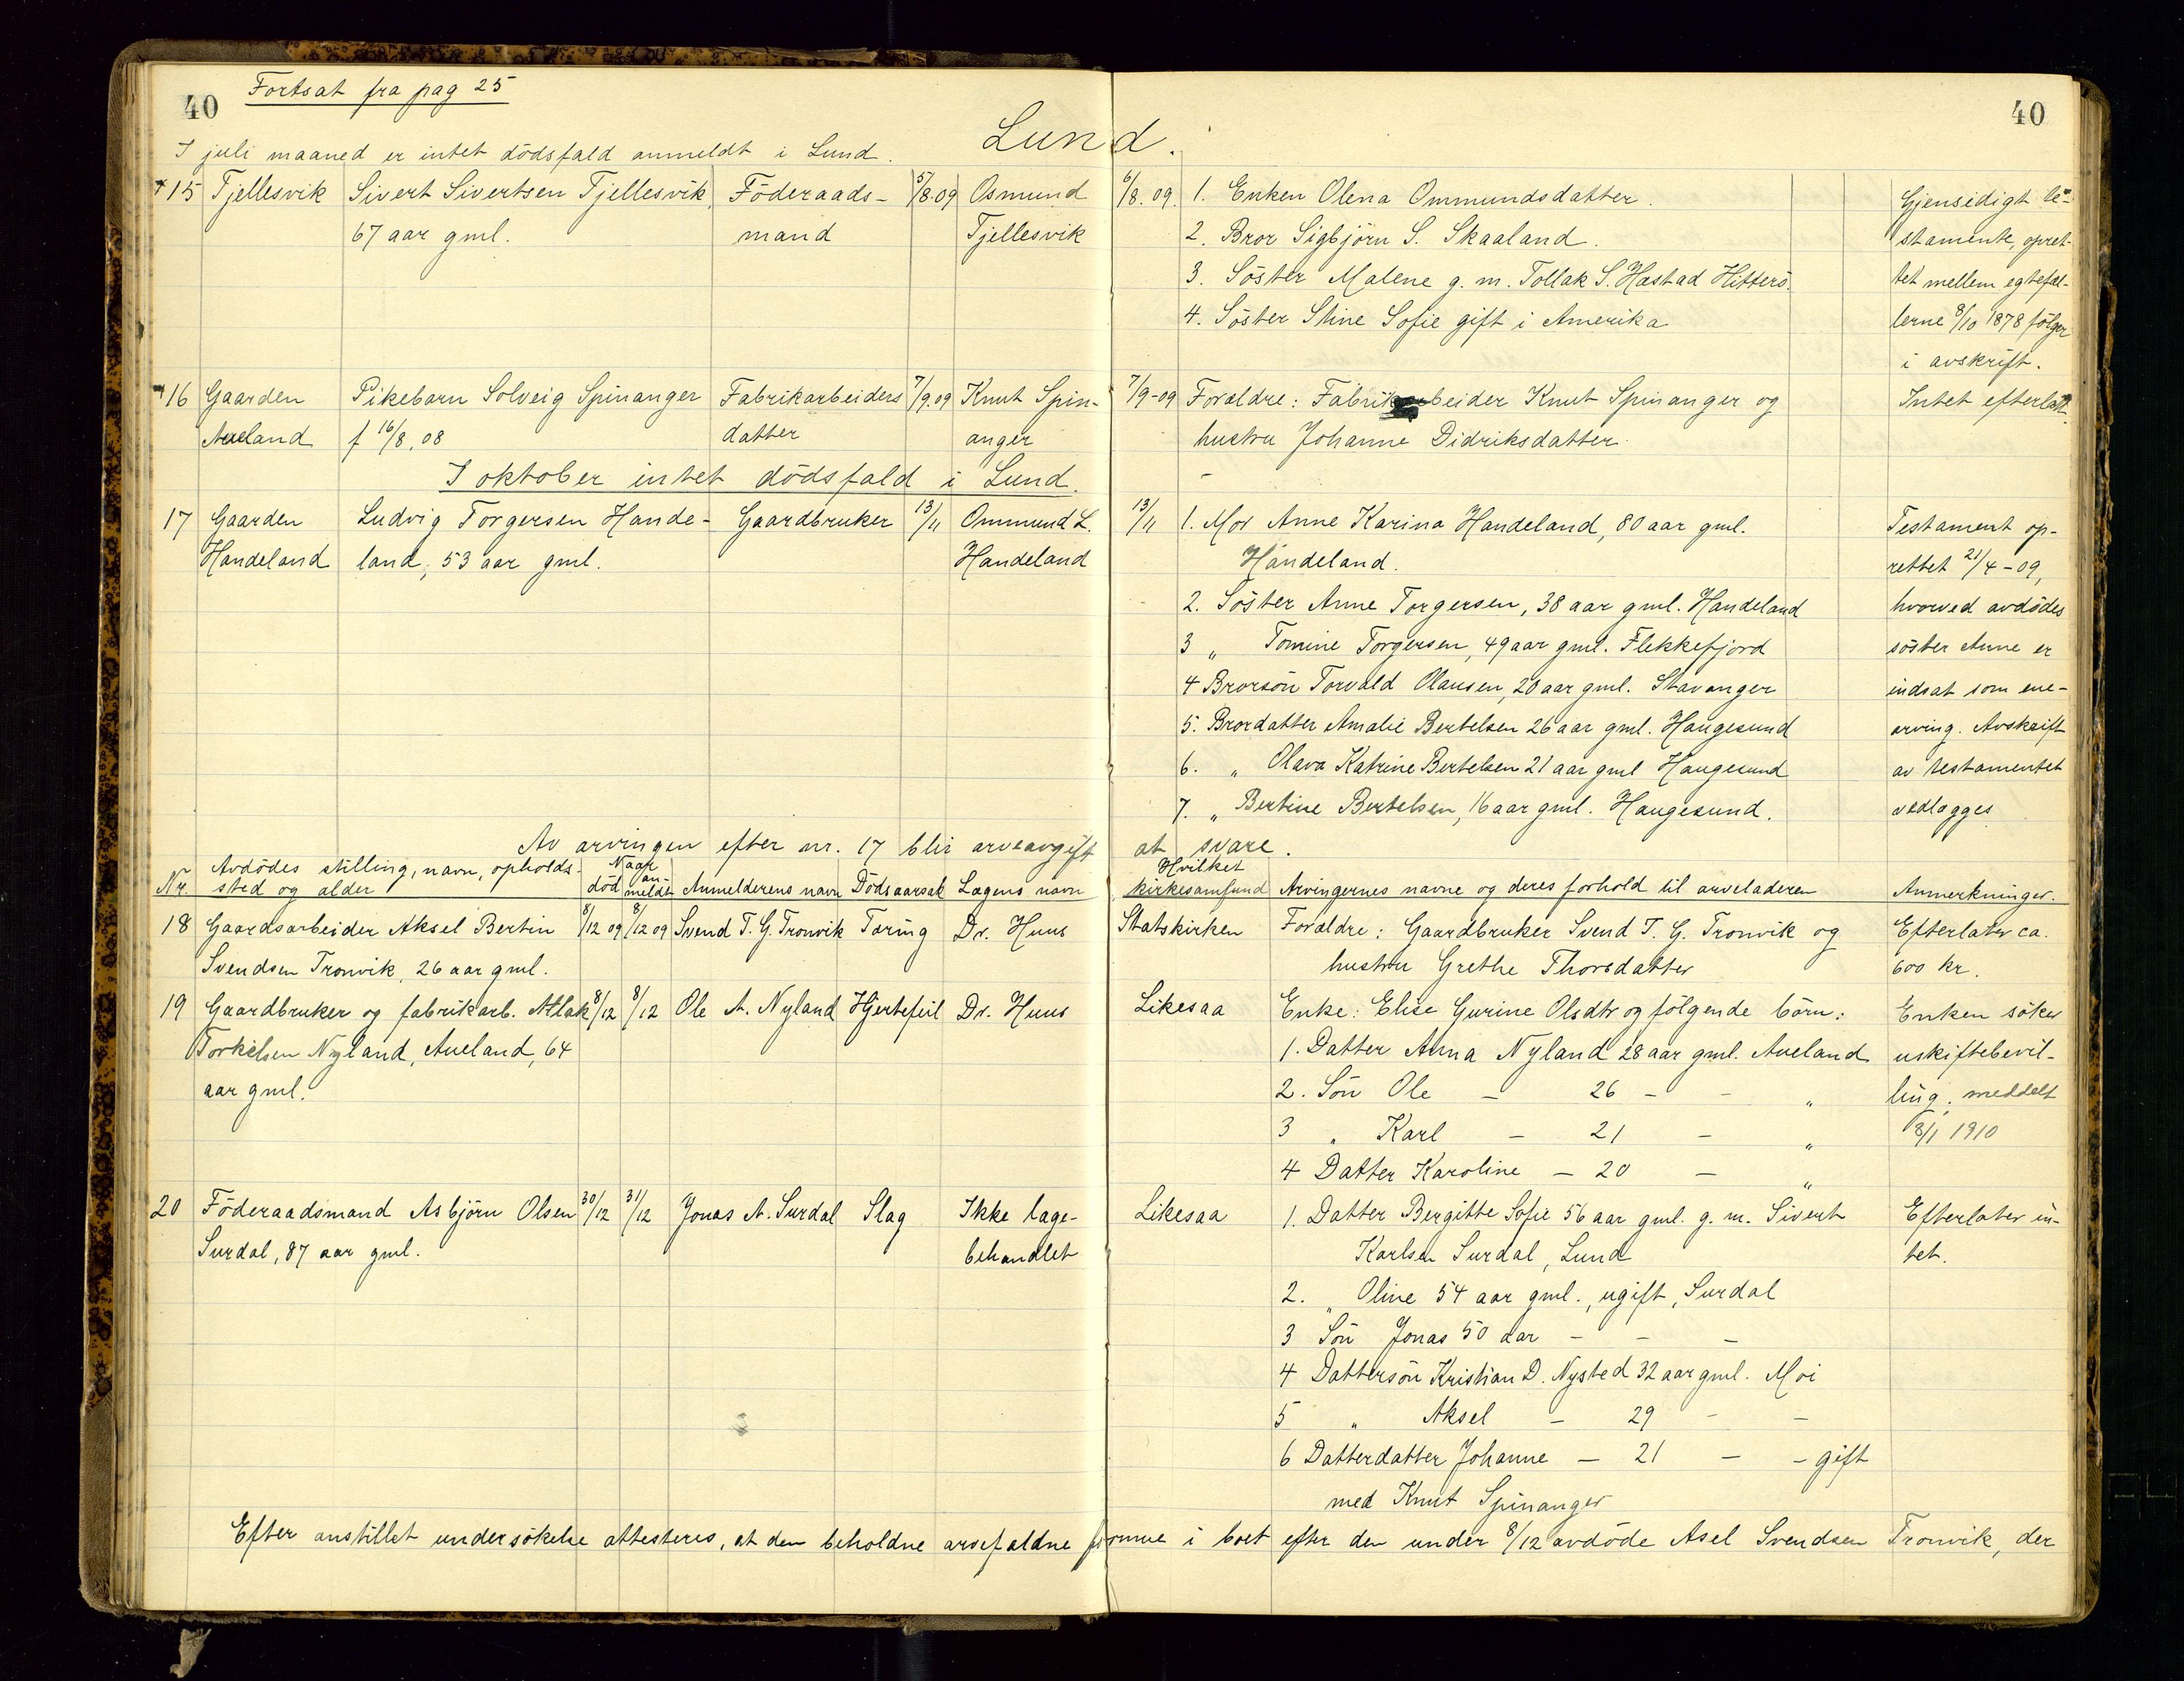 40 Fortsat fra pag 25 40
Lund.
I juli maaned er intet dödsfald anmeldt i Lund.
15 Tjellesvik Sivert Sivertsen Tjellesvik, Föderaads- 5/8.09 Osmund 6/8.09. 1. Enken Olena Ommundsdatter. Gjensidigt te-
67 aar gml. mand Tjellesvik 2. Bror Sigbjörn S. Skaaland. stamente, opret-
3. Söster Malene g. m. Tollak S. Hastad Hitterö. tet mellem egtefæl-
4. Söster Stine Sofie gift i Amerika lerne 8/10 1878 följer
i avskrift.
16 Gaarden Pikebarn Solveig Spinanger Fabrikarbeiders 7/9.09 Knut Spin- 7/9-09 Forældre: Fabrikarbeider Knut Spinanger og Intet efterlatt.
Aueland f 16/8.08 datter anger hustru Johanne Didriksdatter.
I oktober intet dödsfald i Lund.
17 Gaarden Ludvig Torgersen Hande- Gaardbruker 13/11 Ommund L. 13/11 1. Mor Anne Karina Handeland, 80 aar gml. Testament op-
Handeland land, 53 aar gml. Handeland Handeland. rettet 21/4-09,
2. Söster Anne Torgersen, 38 aar gml. Handeland hvorved avdödes
3 „ Tomine Torgersen, 49 aar gml. Flekkefjord söster Anne er
4 Brorsön Torvald Olausen, 20 aar gml. Stavanger indsat som ene-
5. Brordatter Amalie Bertelsen 26 aar gml. Haugesund arving. Avskrift
6. „ Olava Katrine Bertelsen 21 aar gml Haugesund av testamentet
7. „ Bertine Bertelsen, 16 aar gml. Haugesund. vedlægges
Av arvingen efter nr. 17 blir arveavgift at svare.
Avdödes stilling, navn, opholds- Naar Hvilket
Nr. sted og alder död anmeldt Anmelderens navn Dödsaarsak Lægens navn kirkesamfund Arvingernes navne og deres forhold til arveladeren Anmerkninger.
18 Gaardsarbeider Aksel Bertin 8/12 09 8/12 09 Svend T. G. Tronvik Tæring Dr. Huus Statskirken Forældre: Gaardbruker Svend T. G. Tronvik og Efterlater ca.
Svendsen Tronvik, 26 aar gml. hustru Grethe Thorsdatter 600 kr.
19 Gaardbruker og fabrikarb. Atlak 8/12 8/12 Ole A. Nyland Hjertefeil Dr. Huus Likesaa Enke: Elise Gurine Olsdtr og fölgende börn: Enken söker
Torkelsen Nyland, Aueland, 64 1. Datter Anna Nyland 28 aar gml. Aueland uskiftebevil-
aar gml. 2. Sön Ole - 26 - - „ ling, meddelt
3 „ Karl - 21 - „ 8/1 1910
4 Datter Karoline - 20 - „
20 Föderaadsmand Asbjörn Olsen 30/12 31/12 Jonas A. Surdal Slag Ikke læge- Likesaa 1. Datter Bergitte Sofie 56 aar gml. g. m. Sivert Efterlater in-
Surdal, 87 aar gml. behandlet Karlsen Surdal, Lund tet.
2. „ Oline 54 aar gml., ugift, Surdal
3 Sön Jonas 50 aar - - -
4 Dattersön Kristian D. Nysted 32 aar gml. Moi
5 „ Aksel - 29 - -
6 Datterdatter Johanne - 21 - - gift
med Knut Spinanger
Efter anstillet undersökelse attesteres, at den beholdne arvefaldne formue i boet efter den under 8/12 avdöde Asel Svendsen Tronvik, der